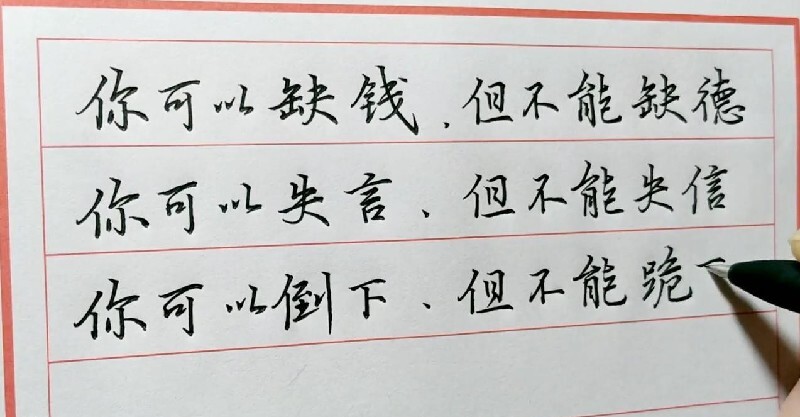 你可以缺钱，但不能缺德
你可以失言、但不能失信
你可以倒下、但不能跪